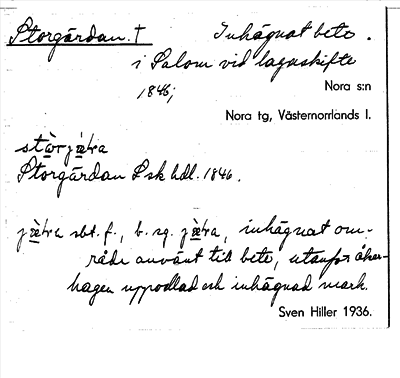 Storgårdan. †
Inhägnat bete.
i Salom vid lagaskifte
1846;
Nora s:n
Nora tg, Västernorrlands l.
Storgårdan Lsk hdl. 1846.
sbt. f., b. sg. inhägnat om-
råde använt till bete, utanför åker-
hagen uppodlad och inhägnad mark.
Sven Hiller 1936.